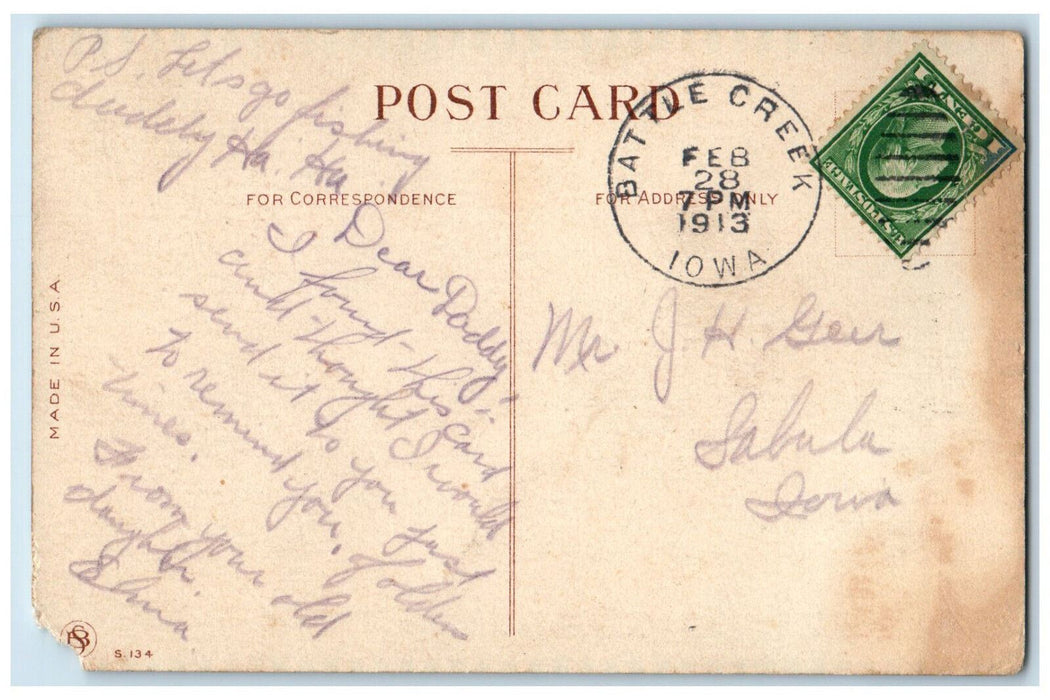 P.S. Lets go fishing
daddy Ha. Ha
POST CARD
FOR CORRESPONDENCE
FOR ADDRESS ONLY
BATTLE CREEK
FEB
28
7 PM
1913
IOWA
U.S. POSTAGE
1 CENT 1
Dear Daddy-
I found this card
and thought I would
send it to you just
to remind you, of olden
times.
From your old
daughter
Elma
Mr J. H. Geir
Sabula
Iowa
MADE IN U.S.A.
S. 134